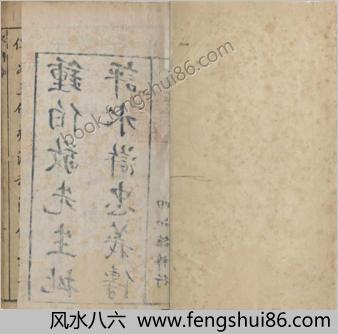 鍾伯敬先生批
評水滸忠義傳
四知館梓行
book.fengshui86.com
风水八六 www.fengshui86.com